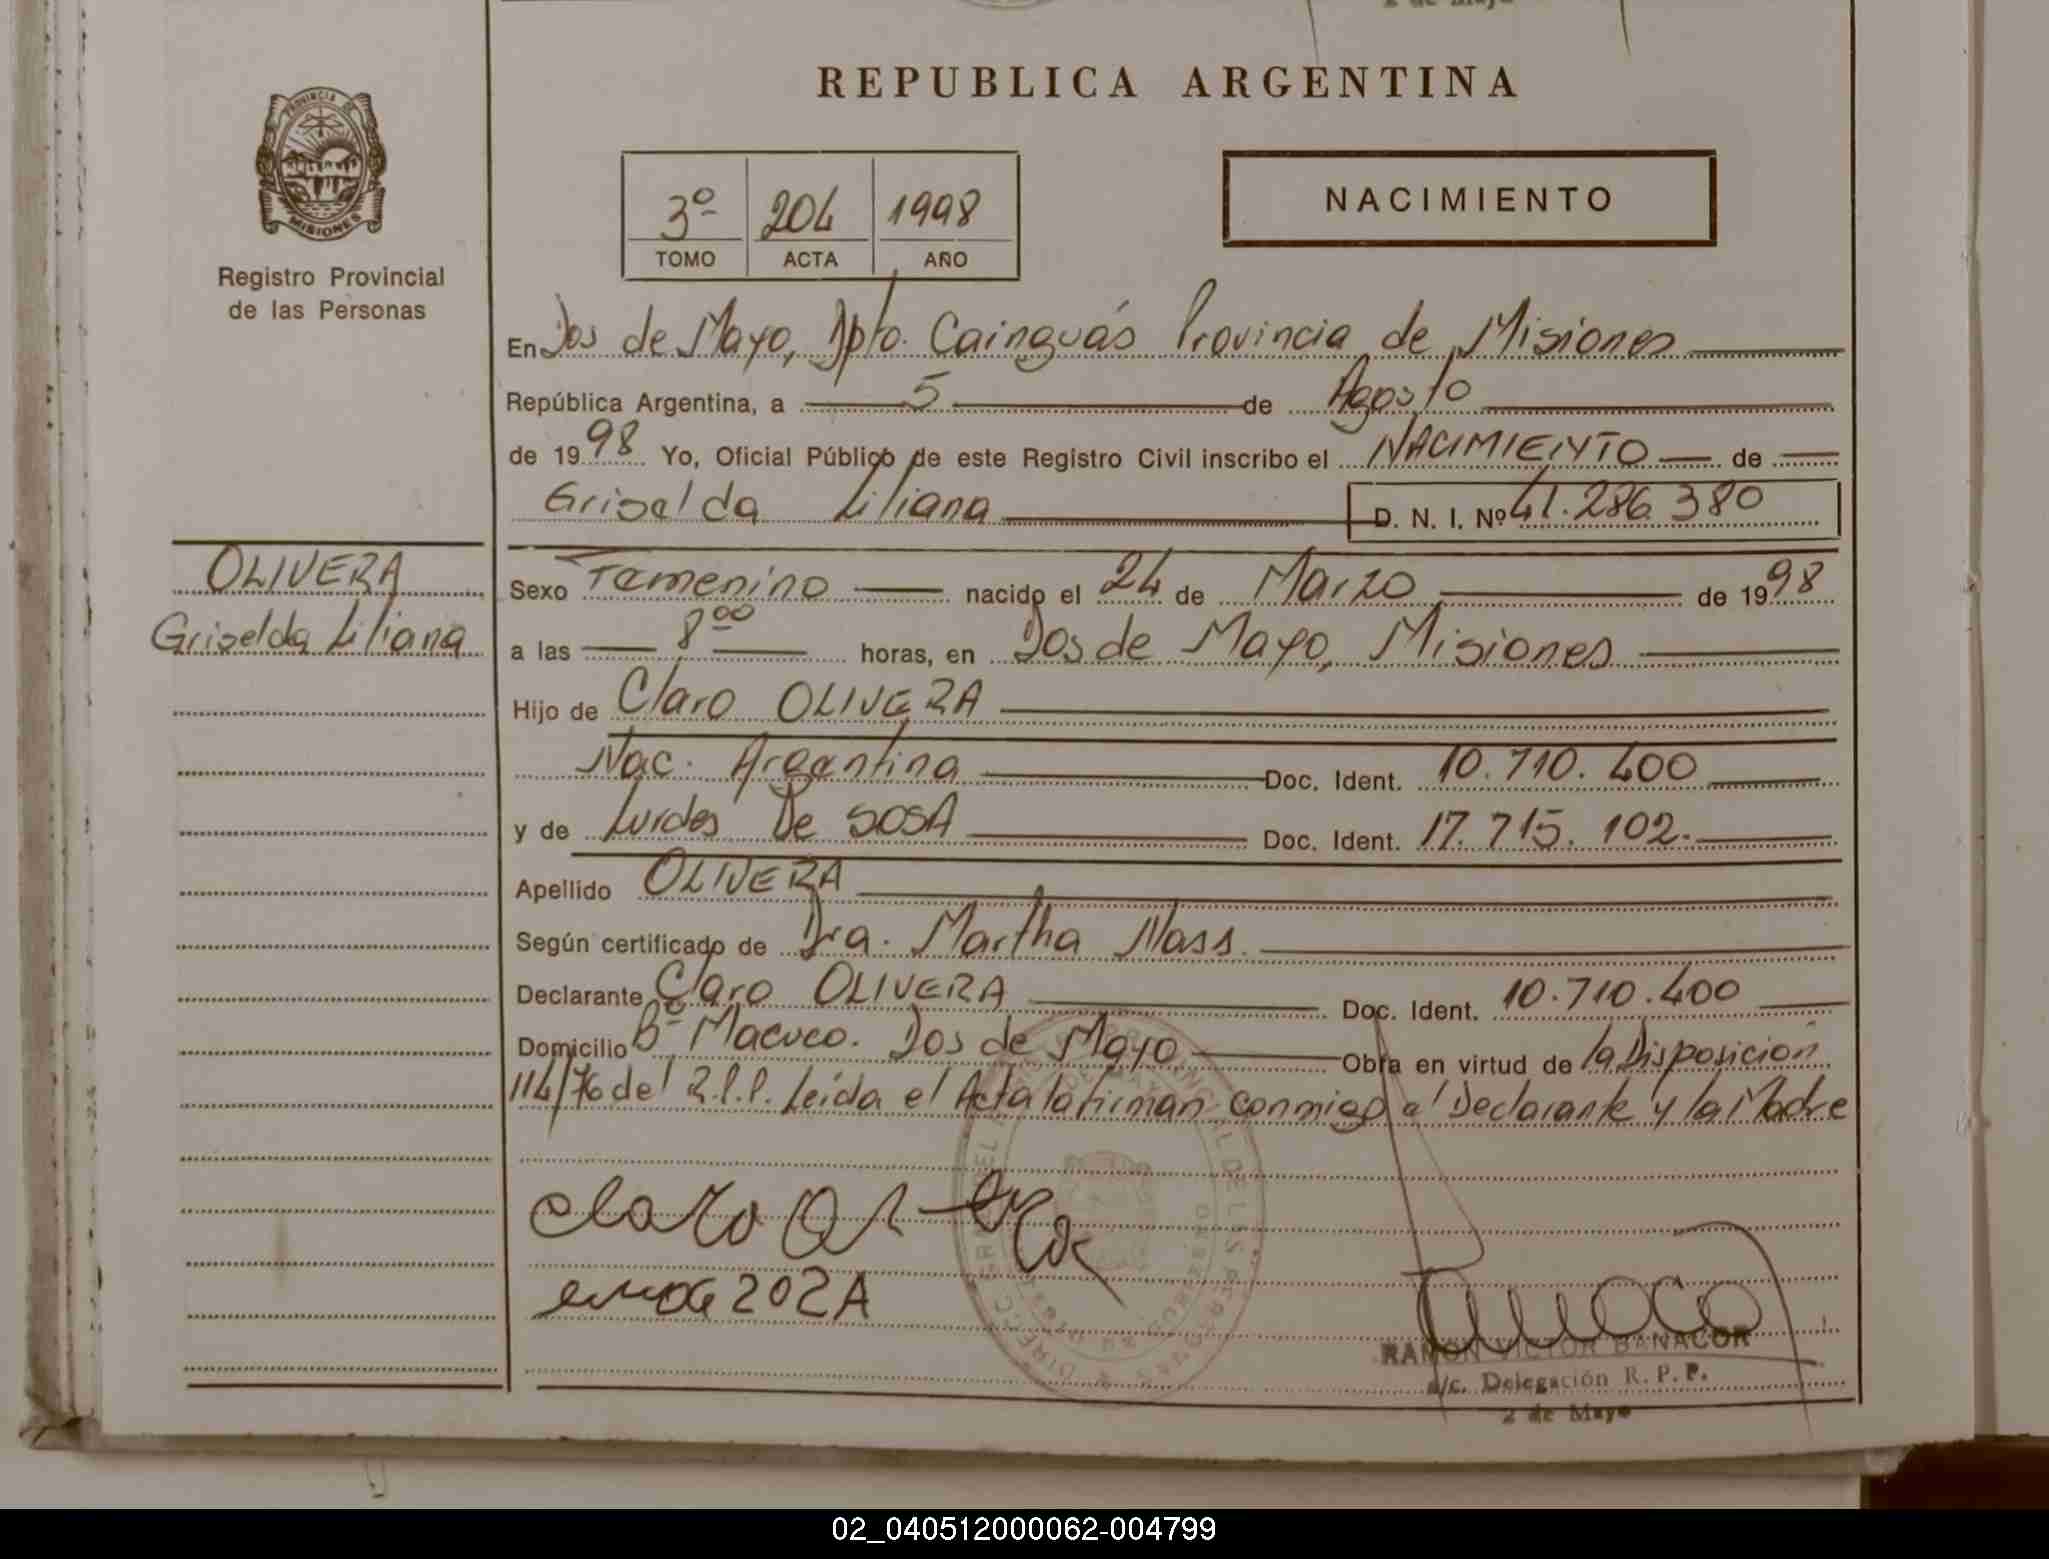 2 de Mayo
REPUBLICA ARGENTINA
PROVINCIA DE
MISIONES
Registro Provincial
de las Personas
3º 204 1998
TOMO ACTA AÑO
NACIMIENTO
En Dos de Mayo, Dpto. Cainguás Provincia de Misiones
República Argentina, a 5 de Agosto
de 1998 Yo, Oficial Público de este Registro Civil inscribo el NACIMIENTO de
Griselda Liliana D. N. I. Nº 41.286.380
OLIVERA
Griselda Liliana
Sexo Femenino nacido el 24 de Marzo de 1998
a las 8 00 horas, en Dos de Mayo, Misiones
Hijo de Claro OLIVERA
Nac. Argentina Doc. Ident. 10.710.400
y de Lurdes De SOSA Doc. Ident. 17.715.102.
Apellido OLIVERA
Según certificado de Dra. Martha Nass.
Declarante Claro OLIVERA Doc. Ident. 10.710.400
Domicilio Bº Macuco. Dos de Mayo Obra en virtud de la Disposición
114/76 del R.P.P. Leída el Acta la firman conmigo el Declarante y la Madre
claro
RAMON VICTOR BANACOR
a/c. Delegación R. P. P.
2 de Mayo
02_040512000062-004799